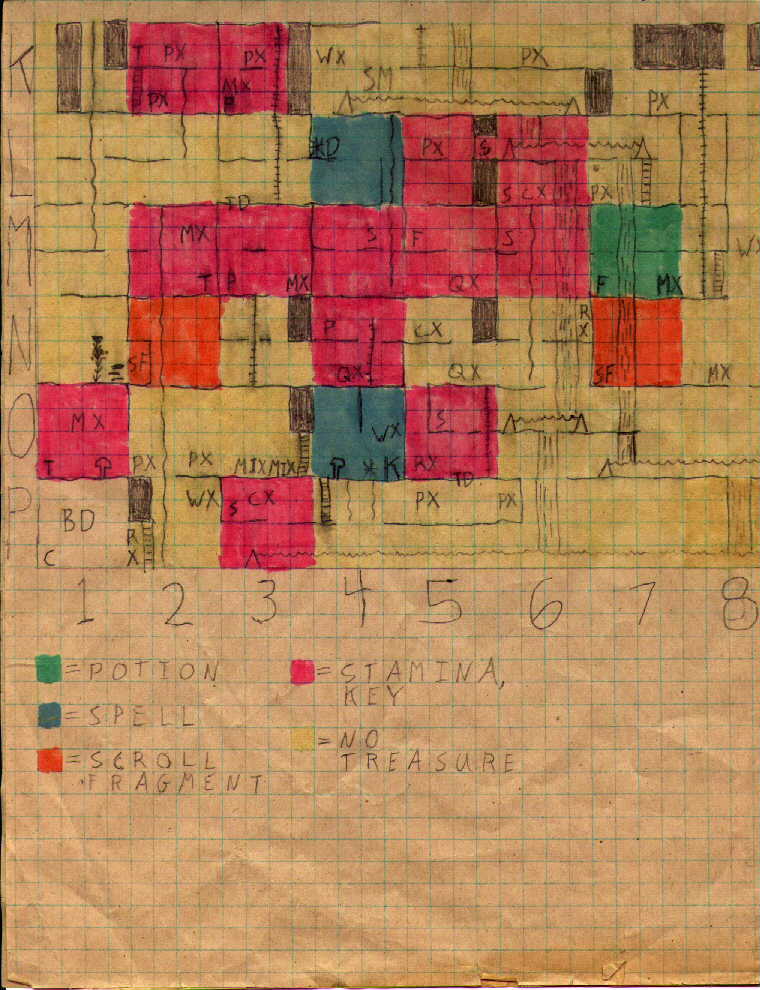 K
T PX PX WX PX
SM
PX MX PX
L
*D PX S
S CX PX
TD
M
MX S F S WX
T P MX QX F MX
N
P CX RX
SF QX QX SF MX
O
MX S
WX
T PX PX MIXMIX * K RX
TD
P
BD WX S CX PX PX
C RX
1 2 3 4 5 6 7 8
= POTION
= SPELL
= SCROLL
FRAGMENT
= STAMINA,
KEY
= NO
TREASURE